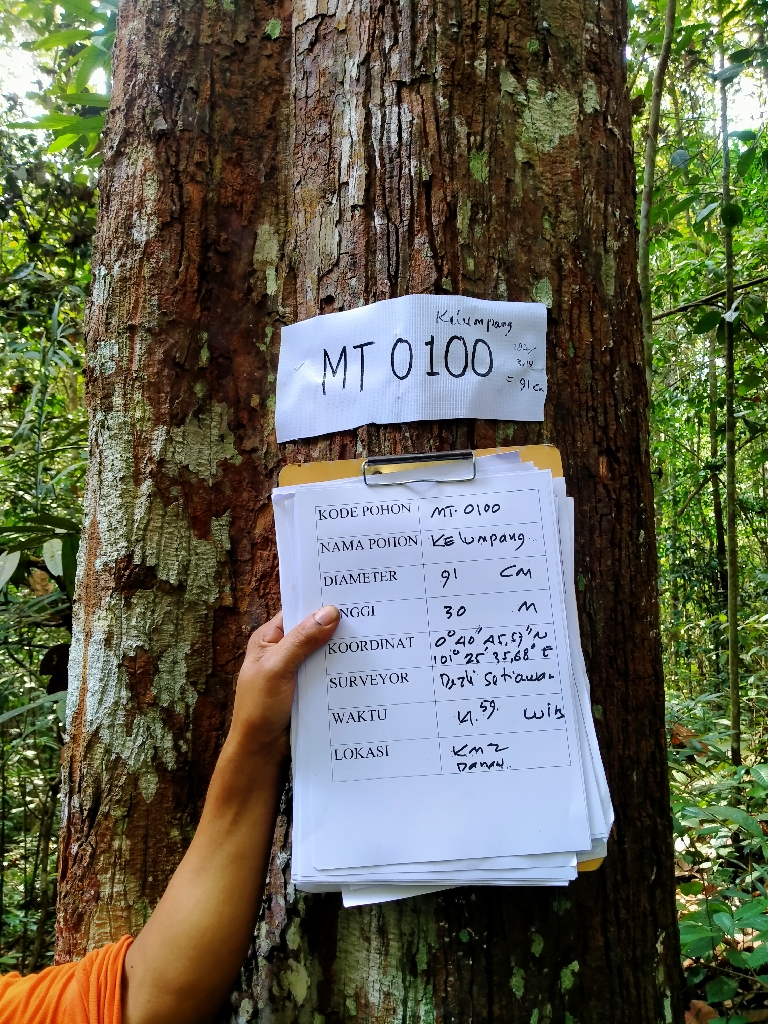 Kelumpang
MT 0100
3,14
= 91 cm
KODE POHON MT. 0100
NAMA POHON Kelumpang
DIAMETER 91 CM
NGGI 30 M
KOORDINAT 0° 40' 45,57" N
101° 25' 35,68" E
SURVEYOR Setiawan
WAKTU 59. wib
LOKASI KM 2
Danau.